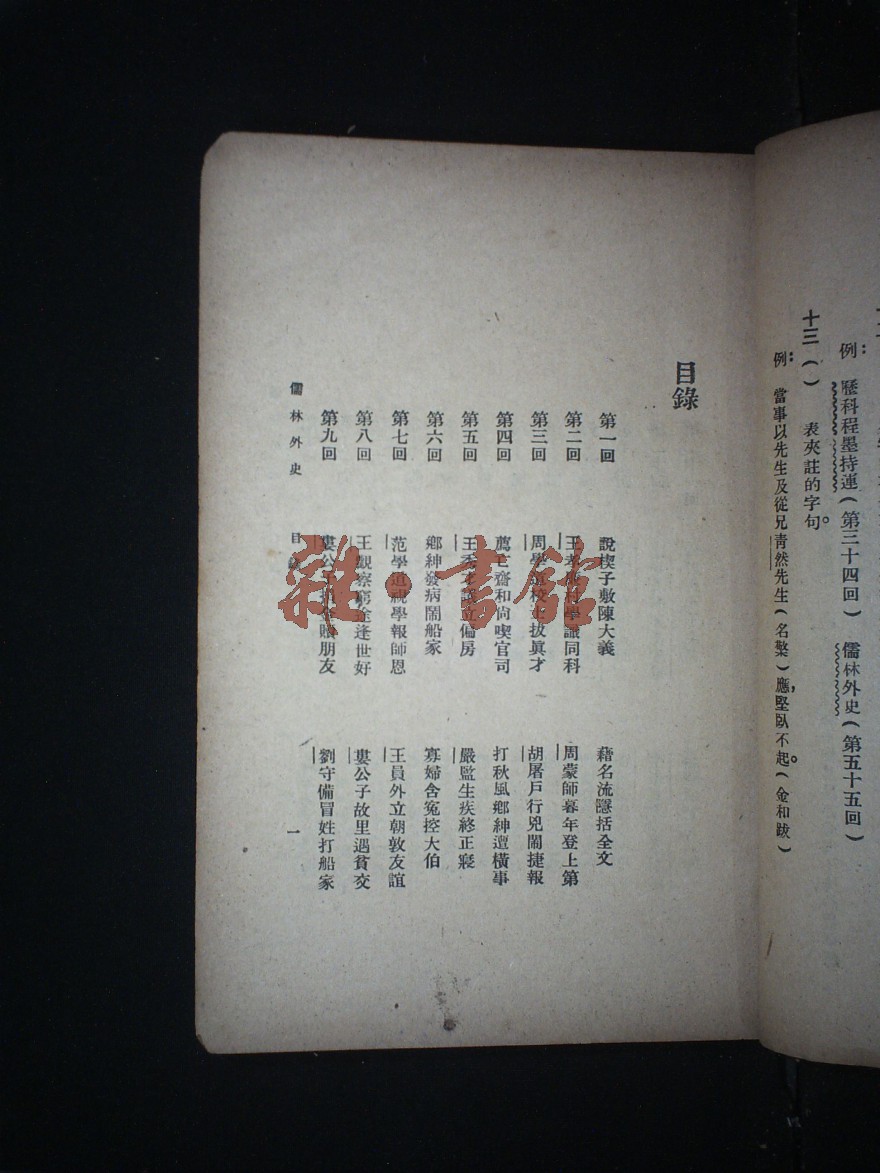 例：歷科程墨持運（第三十四回）　儒林外史（第五十五回）
十三（　）　表夾註的字句。
例：當事以先生及從兄青然先生（名檠）應，堅臥不起。（金和跋）
目錄
第一回　說楔子敷陳大義　藉名流隱括全文
第二回　王孝廉村學識同科　周蒙師暮年登上第
第三回　周學道校士拔眞才　胡屠戶行兇鬧捷報
第四回　薦亡齋和尙喫官司　打秋風鄉紳遭橫事
第五回　王秀才議立偏房　嚴監生疾終正寢
第六回　鄉紳發病鬧船家　寡婦含冤控大伯
第七回　范學道視學報師恩　王員外立朝敦友誼
第八回　王觀察窮途逢世好　婁公子故里遇貧交
第九回　婁公子捐金贖朋友　劉守備冒姓打船家
儒林外史　目錄　一
雜·書館